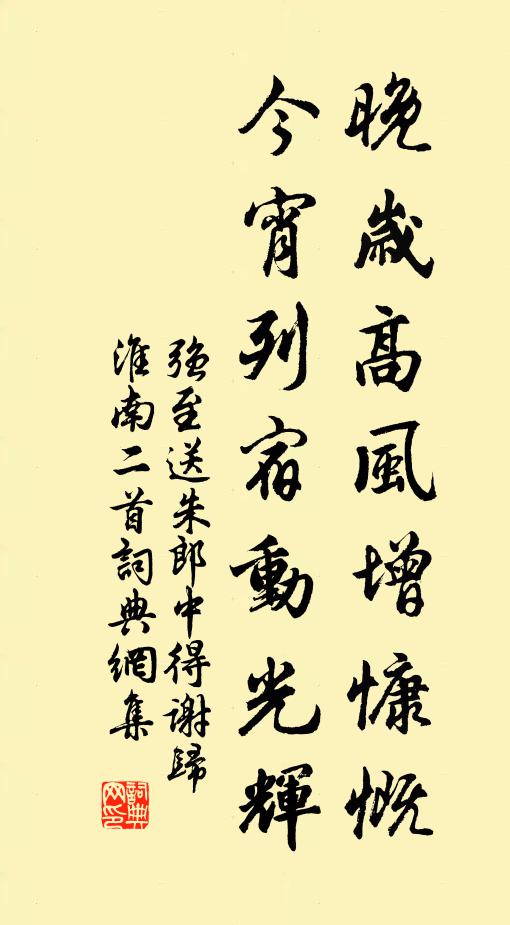 晚歲高風增慷慨
今宵列宿動光輝
強至送朱郎中得謝歸
淮南二首詞典網集
詞典網印